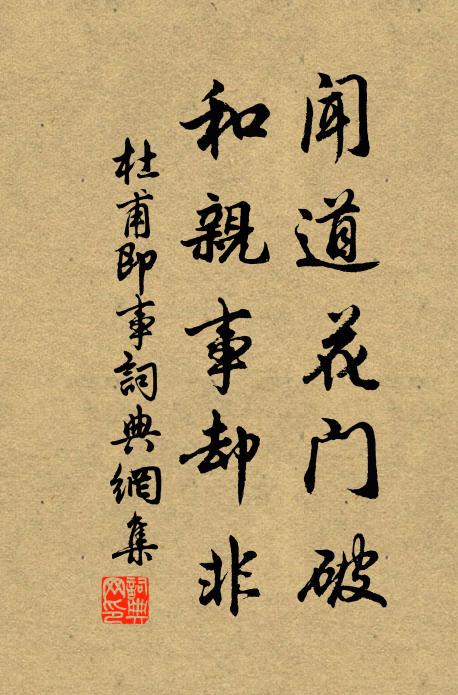 闻道花门破
和親事却非
杜甫即事詞典網集
詞典網印